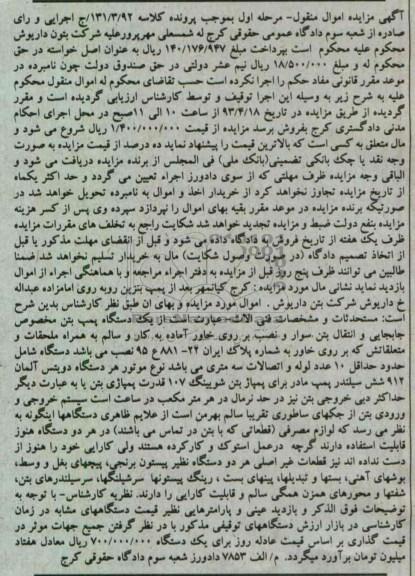 آگهی مزایده اموال منقول- مرحله اول بموجب پرونده کلاسه ۱۳۱/۳/۹۲/ج اجرایی و رای
صادره از شعبه سوم دادگاه عمومی حقوقی کرج له شمسعلی مهرپرورعلیه شرکت بتون داریوش
محکوم علیه محکوم است بپرداخت مبلغ ۱۴۰/۱۷۶/۹۴۷ ریال به عنوان اصل خواسته در حق
محکوم له و مبلغ ۱۸/۵۰۰/۰۰۰ ریال نیم عشر دولتی در حق صندوق دولت چون نامبرده در
موعد مقرر قانونی مفاد حکم را اجرا نکرده است حسب تقاضای محکوم له اموال منقول محکوم
علیه به شرح زیر به وسیله این اجرا توقیف و توسط کارشناس ارزیابی گردیده است و مقرر
گردیده از طریق مزایده در تاریخ ۹۳/۴/۱۸ از ساعت ۱۰ الی ۱۱صبح در محل اجرای احکام
مدنی دادگستری کرج بفروش برسد مزایده از قیمت ۱/۴۰۰/۰۰۰/۰۰۰ ریال شروع می شود و
مال متعلق به کسی است که بالاترین قیمت را پیشنهاد نماید ده درصد از قیمت مزایده به صورت
وجه نقد یا چک بانکی تضمینی(بانک ملی) فی المجلس از برنده مزایده دریافت می شود و
الباقی وجه مزایده ظرف مهلتی که از سوی دادورز اجراء تعیین می گردد و حد اکثر یکماه
از تاریخ مزایده تجاوز نخواهد کرد از خریدار اخذ و اموال به نامبرده تحویل خواهد شد در
صورتیکه برنده مزایده در موعد مقرر بقیه بهای اموال را نپردازد سپرده وی پس از کسر هزینه
مزایده بنفع دولت ضبط و مزایده تجدید خواهد شد شکایت راجع به تخلف های مقررات مزایده
ظرف یک هفته از تاریخ فروش به دادگاه داده می شود و قبل از انقضای مهلت مذکور یا قبل
از اتخاذ تصمیم دادگاه (در صورت وصول شکایت) مال به خریدار تسلیم نخواهد شد.ضمنا
طالبین می توانند ظرف پنج روز قبل از مزایده به دفتر اجراء مراجعه و با هماهنگی اجراء از اموال
بازدید نماید نشانی مال مورد مزایده : کرج کیانمهر بعد از پمپ بنزین روبه روی امامزاده عبداله
خ داریوش شرکت بتن داریوش . اموال مورد مزایده و بهای ان طبق نظر کارشناس بدین شرح
است: مستحدثات و مشخصات فنی الات- عبارت است از یک دستگاه پمپ بتن مخصوص
جابجایی و انتقال بتن سوار و نصب بر روی خاور آماده به کار و سالم به همراه ملحقات و
متعلقاتش که بر روی خاور به شماره پلاک ایران ۲۲- ۸۸۱ ع ۹۵ نصب می باشد دستگاه شامل
حدود حداقل ۱۰ عدد لوله و اتصالات سه متری می باشد نوع موتور هر دستگاه دویتس آلمان
۹۱۲ شش سیلندر پمپ مادر برای پمپاژ بتن شوینگ ۱۰۷ قدرت پمپاژی بتن یا به عبارت دیگر
حداکثر دبی خروجی بتن نیز در حد نرمال در هر متر مکعب در ساعت است سیستم خروجی و
ورودی بتن از جکهای ساطوری تقریبا سالم بهرمن است از علایم ظاهری دستگاهها اینگونه به
نظر می رسد که لوازم مصرفی (قطعاتی که با بتن در تماس می باشند) در هر دو دستگاه هنوز
قابلیت استفاده دارند گرچه درعمل استوک و کارکرده هستند ولی کارایی خود را هنوز از
دست نداده اند نیز قطعات غیر اصلی هر دو دستگاه نظیر پیستون برنجی، پیچهای بغل و وسط،
بوشهای آهنی، بستها و تبدیلها، پینهای بست ، رینگ پیستونها سرشیلنگها، سرسیلندرهای بتن،
شفتها و محورهای همزن همگی سالم و قابلیت کارایی را دارند. نظریه کارشناس- با توجه به
توضیحات فوق الذکر و بازدید عینی و پارامترهایی نظیر قیمت دستگاههای مشابه در زمان
کارشناسی در بازار ارزش دستگاههای توقیفی مذکور با در نظر گرفتن جمیع جهات موثر در
قیمت گذاری بر اساس قیمت عادله روز برای یک دستگاه ۷۰۰/۰۰۰/۰۰۰ ریال معادل هفتاد
میلیون تومان برآورد میگردد. م/ الف ۷۸۵۳ دادورز شعبه سوم دادگاه حقوقی کرج